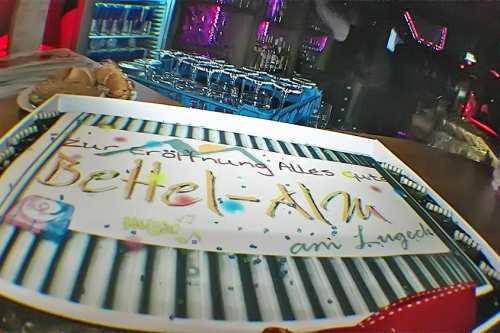 Zur Eröffnung Alles Gute
Bettel-Alm
am Lugeck
Music